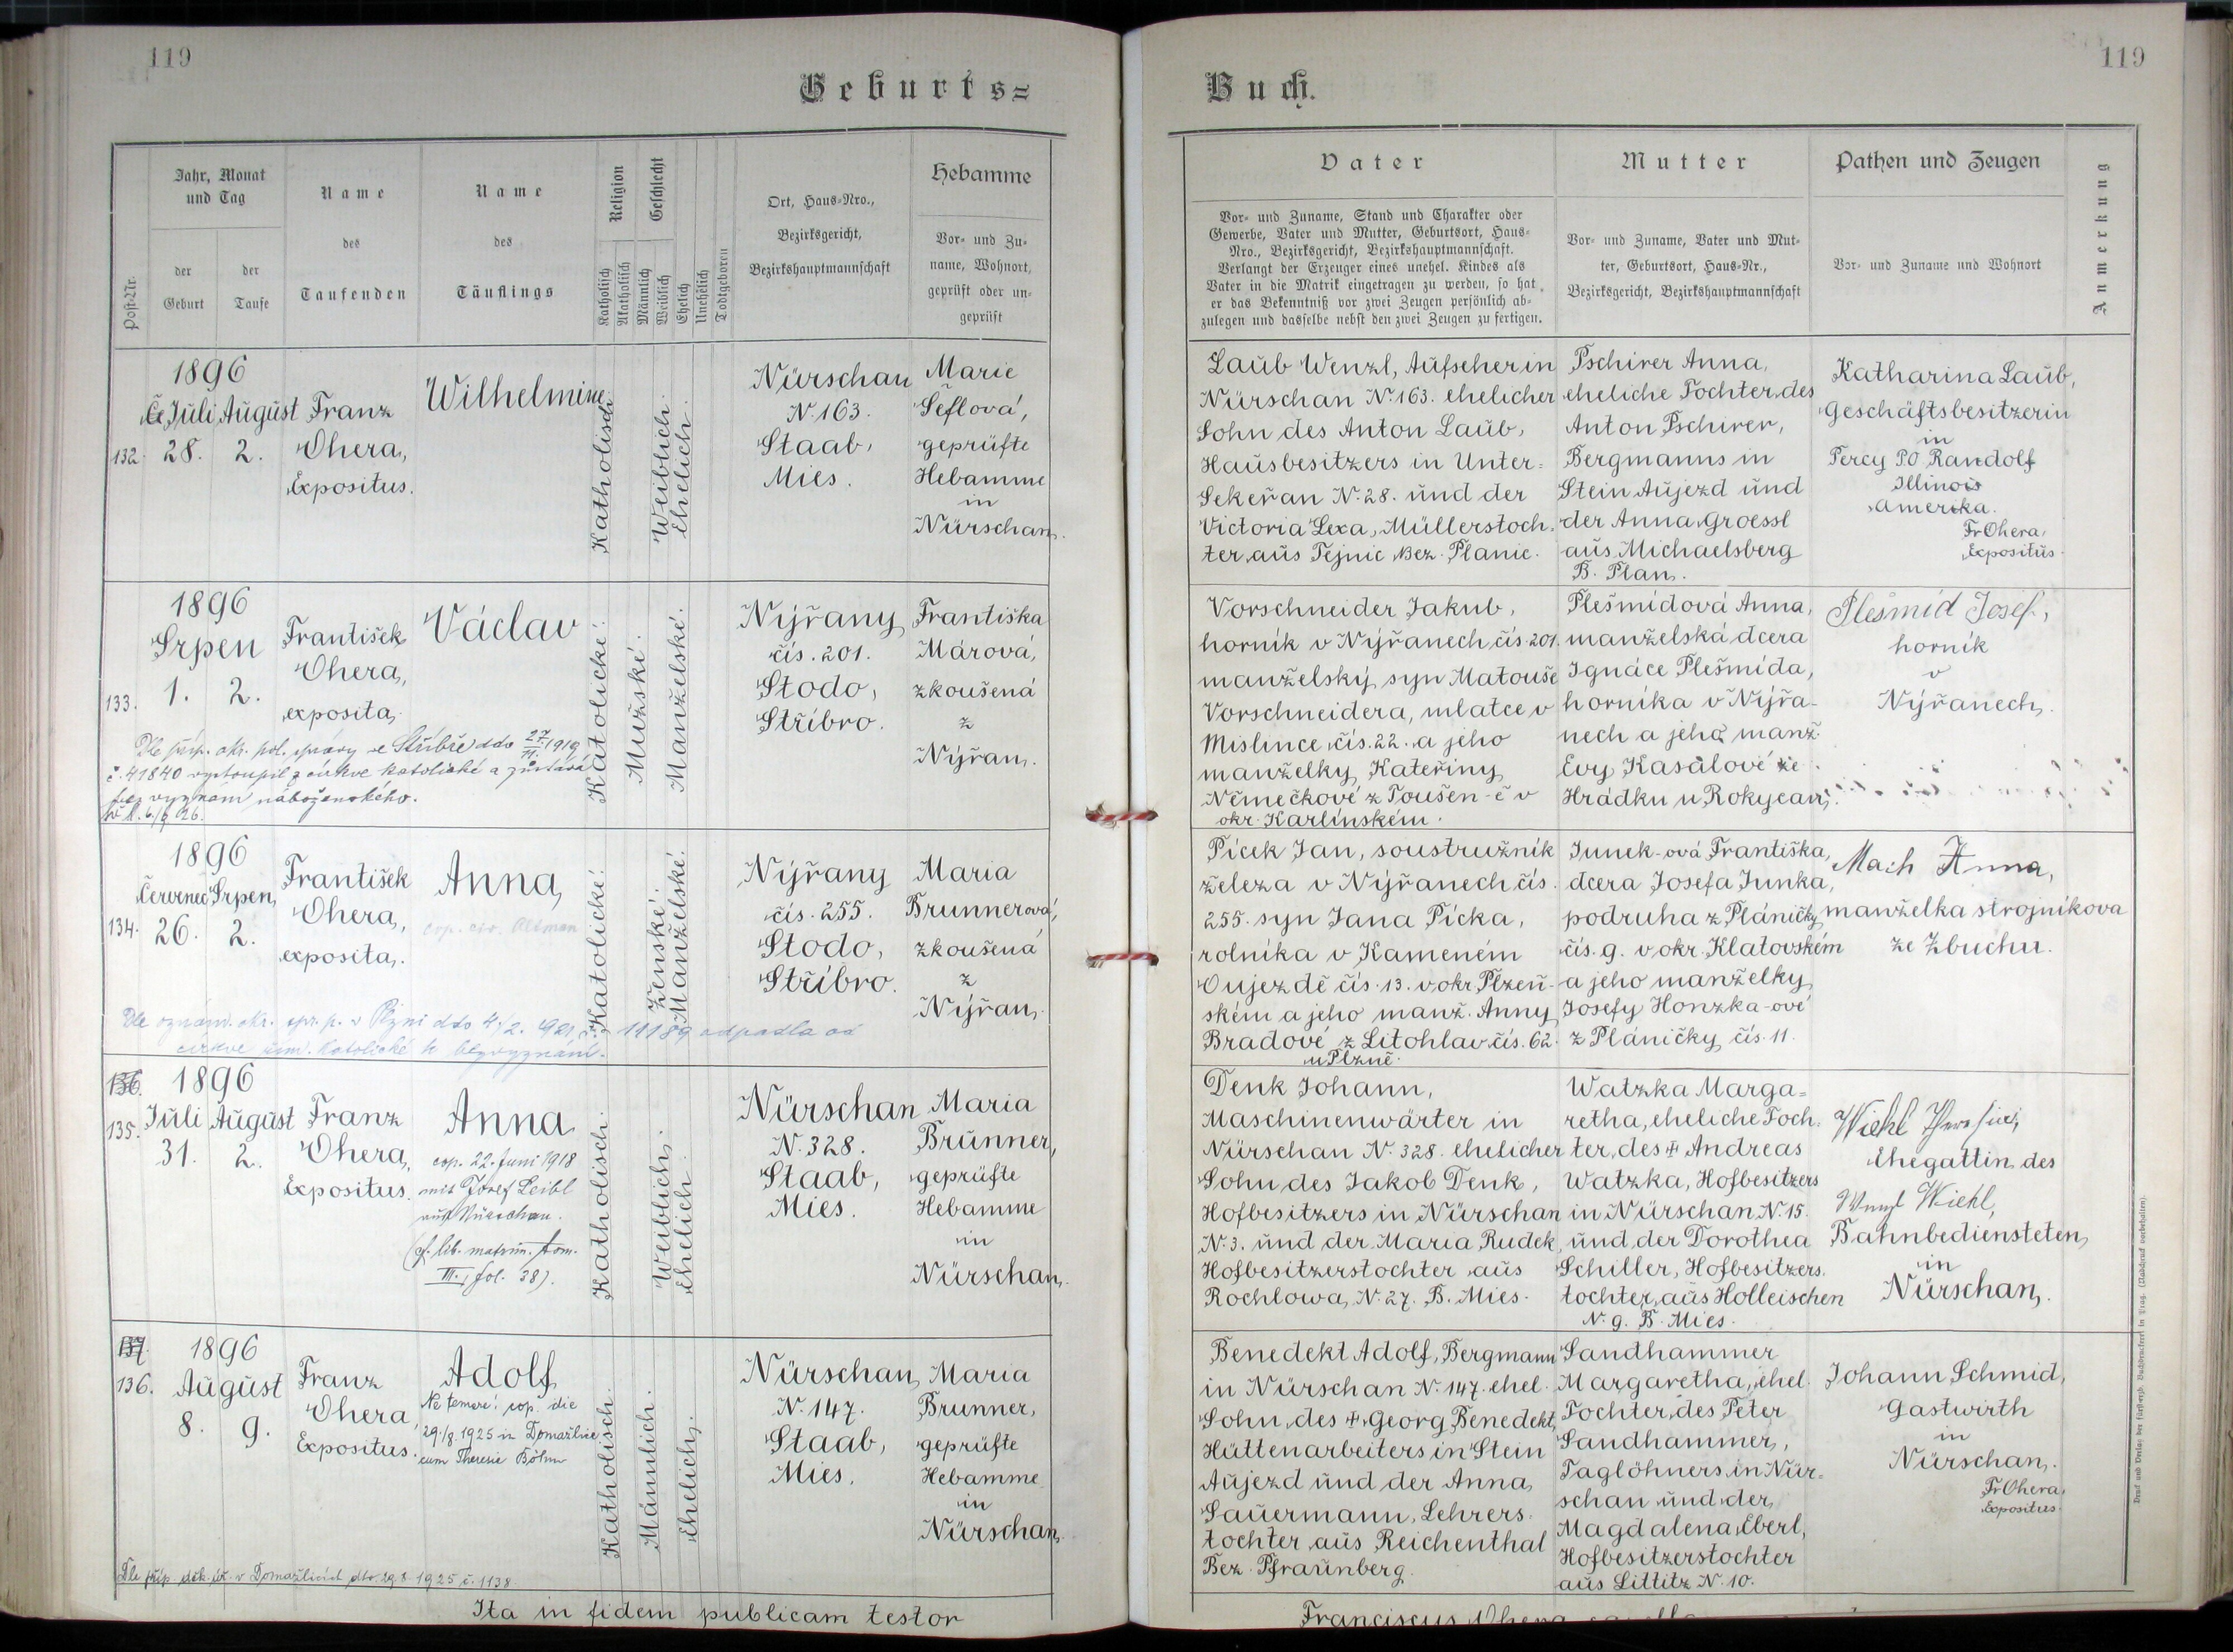 119
Geburts=
Jahr, Monat
und Tag
Name
des
Taufenden
Name
des
Täuflings
Religion
Geschlecht
Ort, Haus-Nro.,
Bezirksgericht,
Bezirkshauptmannschaft
Hebamme
Vor- und Zu-
name, Wohnort,
geprüft oder un-
geprüft
Post-Nr.
der
Geburt
der
Taufe
Katholisch
Akatholisch
Männlich
Weiblich
Ehelich
Unehelich
Todtgeboren
1896
Juli August
132. 28. 2.
Franz
Ohera,
Expositus.
Wilhelmine
Katholisch.
Weiblich.
Ehelich.
Nürschan
N. 163.
Staab,
Mies.
Marie
Šeflová,
geprüfte
Hebamme
in
Nürschan.
1896
Srpen
133. 1. 2.
František
Ohera,
exposita.
Václav
Katolické.
Mužské.
Manželské.
Nýřany
čís. 201.
Stodo,
Stříbro.
Františka
Márová,
zkoušená
z
Nýřan.
Dle příp. okr. pol. správy ve Stříbře ddo 27/11 1919
č. 41840 vystoupil z církve katolické a zůstává
bez vyznání náboženského.
1896
Červenec Srpen
134. 26. 2.
František
Ohera,
exposita.
Anna
Katolické.
Ženské.
Manželské.
Nýřany
čís. 255.
Stodo,
Stříbro.
Maria
Brunnerová,
zkoušená
z
Nýřan.
Dle oznám. okr. spr. p. v Plzni ddo 4/2. 1921 č. 11189 odpadla od
církve řím. katolické k bezvyznání.
136. 1896
135. Juli August
31. 2.
Franz
Ohera,
Expositus.
Anna
cop. 22. Juni 1918
mit Josef Leibl
aus Nürschan.
(cf. lib. matrim. tom.
III., fol. 38).
Katholisch.
Weiblich.
Ehelich.
Nürschan
N. 328.
Staab,
Mies.
Maria
Brunner,
geprüfte
Hebamme
in
Nürschan.
137. 1896
136. August
8. 9.
Franz
Ohera,
Expositus.
Adolf
Ne temere! cop. die
29./8. 1925 in Domažlice
cum Theresie Böhm
Katholisch.
Männlich.
Ehelich.
Nürschan
N. 147.
Staab,
Mies.
Maria
Brunner,
geprüfte
Hebamme
in
Nürschan.
Dle příp. děk. úř. v Domažlicích dto 29.8 1925 č. 1138.
Ita in fidem publicam testor
119
Buch.
Vater
Vor- und Zuname, Stand und Charakter oder
Gewerbe, Vater und Mutter, Geburtsort, Haus-
Nro., Bezirksgericht, Bezirkshauptmannschaft.
Verlangt der Erzeuger eines unehel. Kindes als
Vater in die Matrik eingetragen zu werden, so hat
er das Bekenntniß vor zwei Zeugen persönlich ab-
zulegen und dasselbe nebst den zwei Zeugen zu fertigen.
Mutter
Vor- und Zuname, Vater und Mut-
ter, Geburtsort, Haus-Nr.,
Bezirksgericht, Bezirkshauptmannschaft
Pathen und Zeugen
Vor- und Zuname und Wohnort
Anmerkung
Laub Wenzl, Aufseher in
Nürschan N. 163. ehelicher
Sohn des Anton Laub,
Hausbesitzers in Unter=
Sekeřan N. 28. und der
Victoria Lexa, Müllerstoch-
ter aus Tejnic Bez. Planic.
Pschirer Anna,
eheliche Tochter des
Anton Pschirer,
Bergmanns in
Stein Aujezd und
der Anna Groessl
aus Michaelsberg
B. Plan.
Katharina Laub,
Geschäftsbesitzerin
in
Percy P.O Randolf
Illinois
Amerika.
Fr Ohera,
Expositus.
Vorschneider Jakub,
horník v Nýřanech čís. 201.
manželský syn Matouše
Vorschneidera, mlatce v
Mislince čís. 22. a jeho
manželky Kateřiny
Němečkové z Toušen-č v
okr. Karlínském.
Plešmídová Anna,
manželská dcera
Ignáce Plešmída,
horníka v Nýřa-
nech a jeho manž.
Evy Kasalové ze
Hrádku u Rokycan.
Plešmíd Josef,
horník
v
Nýřanech.
Pícek Jan, soustružník
železa v Nýřanech čís.
255. syn Jana Pícka,
rolníka v Kameném
Oujezdě čís. 13. v okr. Plzeň-
ském a jeho manž. Anny
Bradové z Litohlav čís. 62.
u Plzně.
Junek-ová Františka,
dcera Josefa Junka,
podruha z Pláničky
čís. 9. v okr. Klatovském
a jeho manželky
Josefy Honzka-ové
z Pláničky čís. 11.
Mach Anna,
manželka strojníkova
ze Zbuchu.
Denk Johann,
Maschinenwärter in
Nürschan N. 328. ehelicher
Sohn des Jakob Denk,
Hofbesitzers in Nürschan
N. 3. und der Maria Rudek,
Hofbesitzerstochter aus
Rochlowa, N. 27. B. Mies.
Watzka Marga=
retha, eheliche Toch-
ter des ✝ Andreas
Watzka, Hofbesitzers
in Nürschan N. 15.
und der Dorothea
Schiller, Hofbesitzers-
tochter aus Holleischen
N. 9. B. Mies.
Wiehl Theresia,
Ehegattin des
Wenzl Wiehl,
Bahnbediensteten
in
Nürschan.
Benedekt Adolf, Bergmann
in Nürschan N. 147. ehel.
Sohn des ✝ Georg Benedekt,
Hüttenarbeiters in Stein
Aujezd und der Anna
Sauermann, Lehrers-
tochter aus Reichenthal
Bez. Pfraunberg.
Sandhammer
Margaretha, ehel.
Tochter des Peter
Sandhammer,
Taglöhners in Nür=
schan und der
Magdalena Eberl,
Hofbesitzerstochter
aus Littitz N. 10.
Johann Schmid,
Gastwirth
in
Nürschan.
Fr Ohera,
Expositus.
Franciscus Ohera